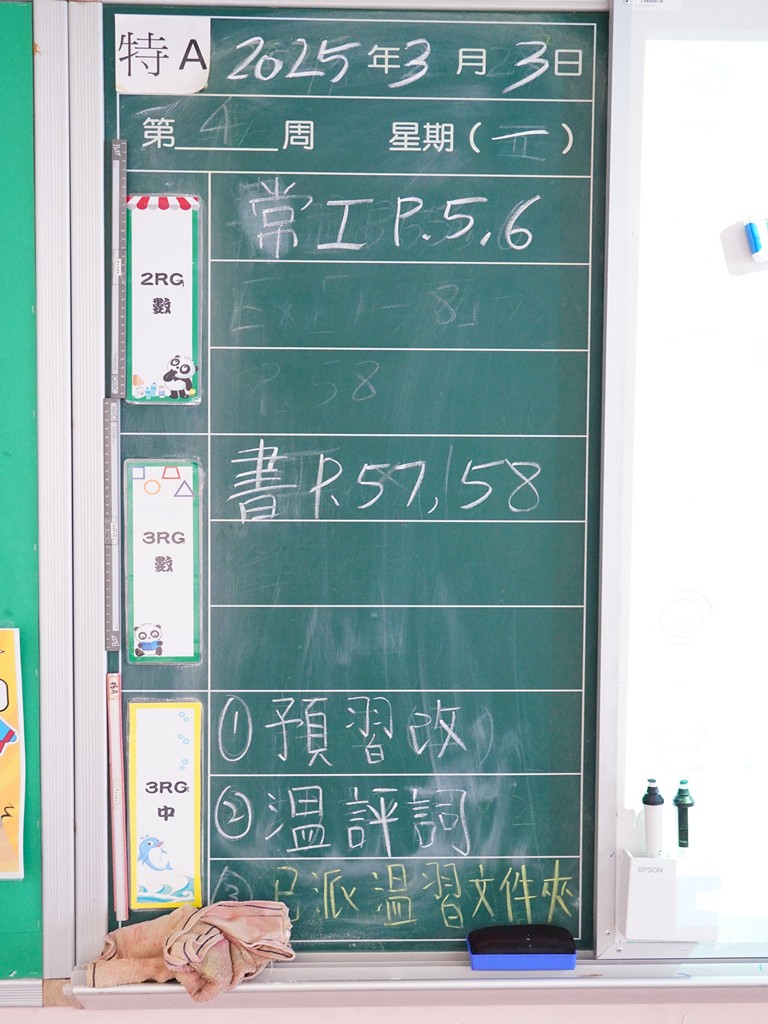 特A 2025年3月3日
第4周 星期(二)
2RG 數
常工 P.5,6
P.58
3RG 數
書 P.57,58
3RG 中
①預習改
②溫評詞
③已派溫習文件夾
EPSON